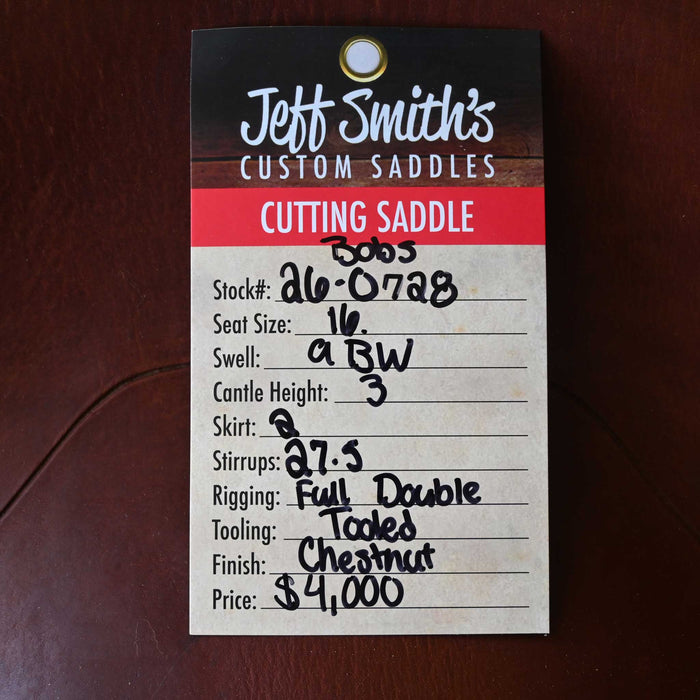 Jeff Smith's
CUSTOM SADDLES
CUTTING SADDLE
Bobs
Stock#: 26-0728
Seat Size: 16.
Swell: 9 BW
Cantle Height: 3
Skirt: 2
Stirrups: 27.5
Rigging: Full Double
Tooling: Tooled
Finish: Chestnut
Price: $4,000